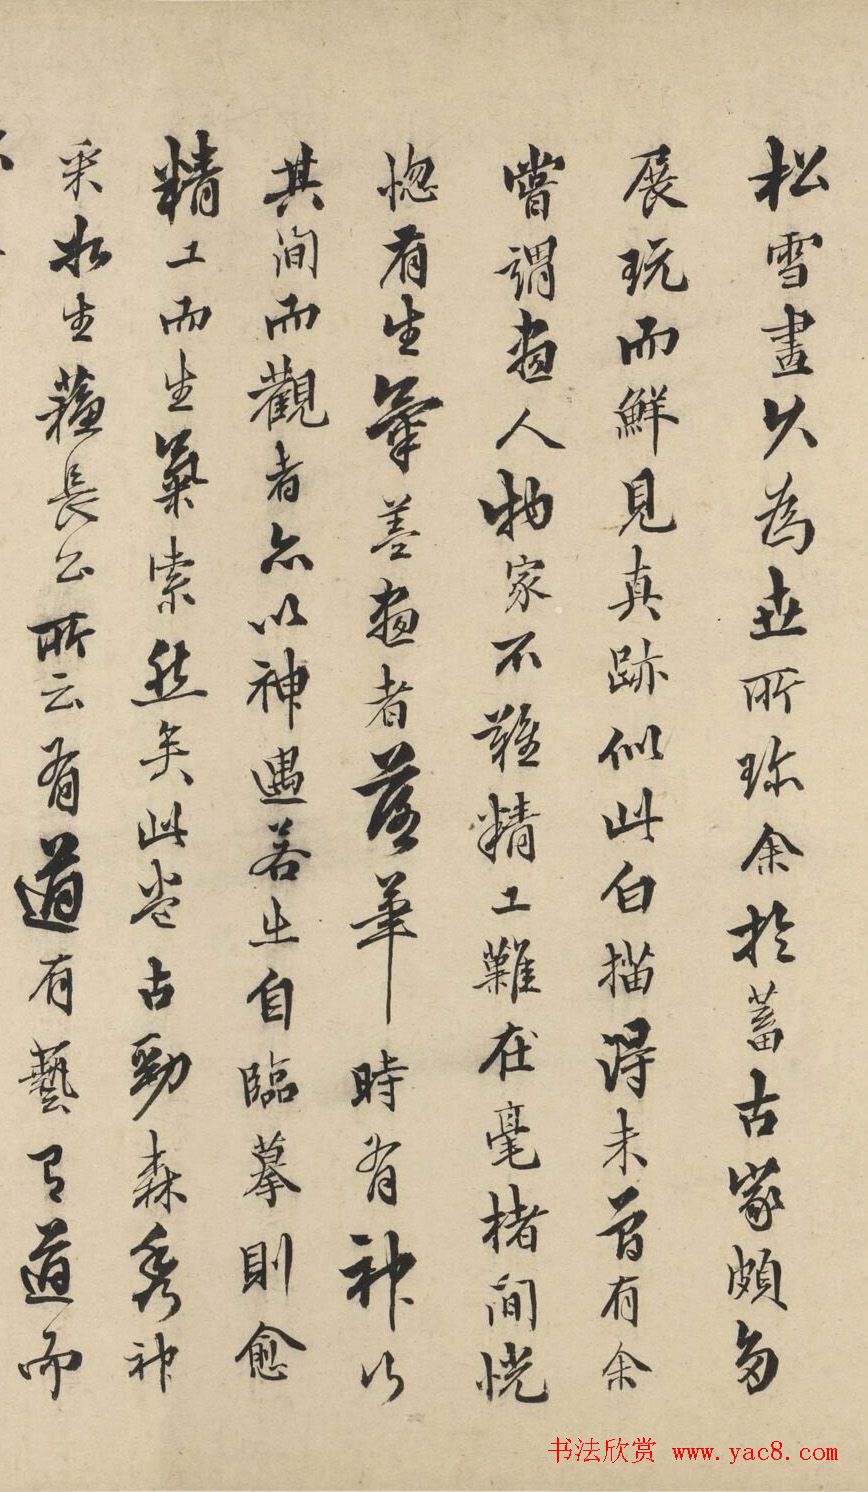 松雪畫久為世所珍余於蓄古家頗多
展玩而鮮見真跡似此白描得未曾有余
嘗謂畫人物家不難精工難在毫楮間恍
惚有生氣善畫者落筆時有神行
其間而觀者亦以神遇若止自臨摹則愈
精工而生氣索然矣此卷古勁森秀神
采如生蘇長公所云有道有藝有道而
书法欣赏 www.yac8.com